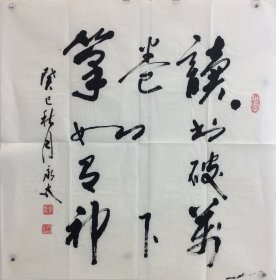 讀书破萬
卷下
筆如有神
癸巳秋月永